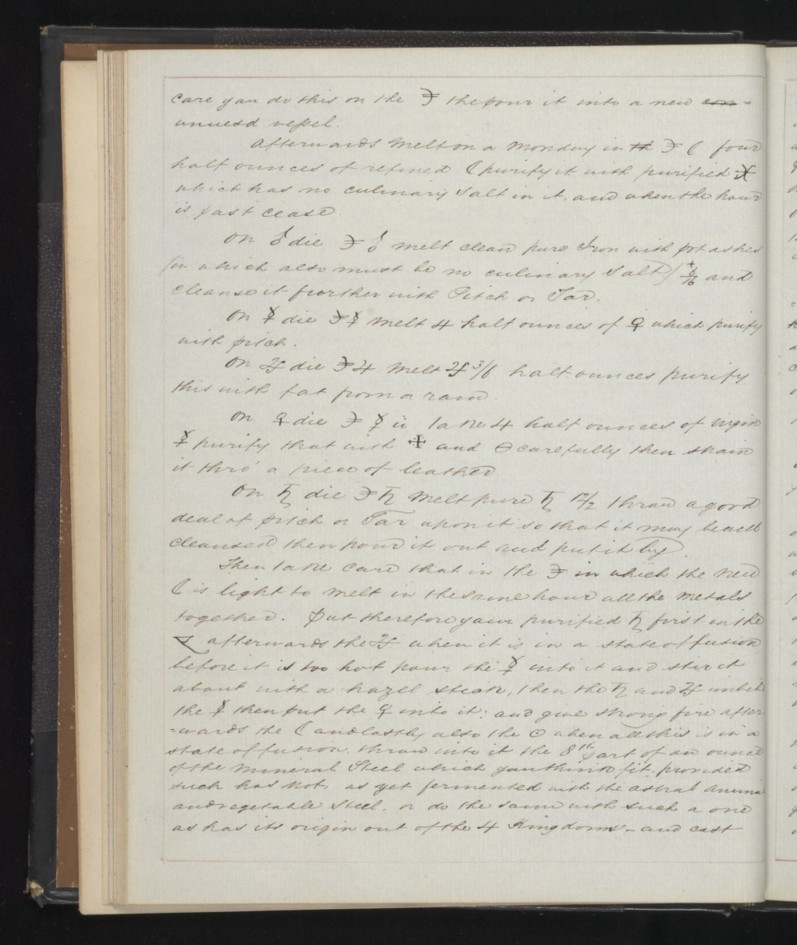 care you do this on the ☽ the pour it into a new ~~con~~-
unused vessel.
Afterwards melt on a Monday in ☽ ☾ four
half ounces of refined ☾ purify it with purified
which has no culinary Salt in it, and when the hour
is past cease
On ♂ die ♂ melt clean pure Iron with pot ashes
(in which also must be no culinary Salt) and
cleanse it further with Pitch or Tar.
On ☿ die ☿ melt 4 half ounces of ♀ which purify
with pitch.
On ♃ die ♃ melt ♃ 3/6 half ounces purify
this with fat from a ram
On ♀ die ♀ take 4 half ounces of virgin
☿ purify that with and ⊖ carefully then strain
it thro' a piece of leather
On ♄ die ♄ melt pure ♄ throw a good
deal of pitch or Tar upon it so that it may be well
cleansed then pour it out and put it by
Then take care that in the in which the new
☾ is light to melt in the same hour all the metals
together. Put therefore your purified ♄ first in the
afterwards the ♃ when it is in a state of fusion
before it is too hot pour the ☿ into it and stir it
about with a hazel steak, then the ♄ and ♃ unbeh
the ☿ then put the ♀ into it: and give strong fire after
-wards the ☾ and lastly also the ☉ when all this is in a
state of fusion. throw into it the 8th part of an ounce
of the mineral Steel which you think fit. provided
such has not as yet fermented with the astral anima
and vegetable Steel. or do the same with such a one
as has its origin out of the 4 Kingdoms - and cast